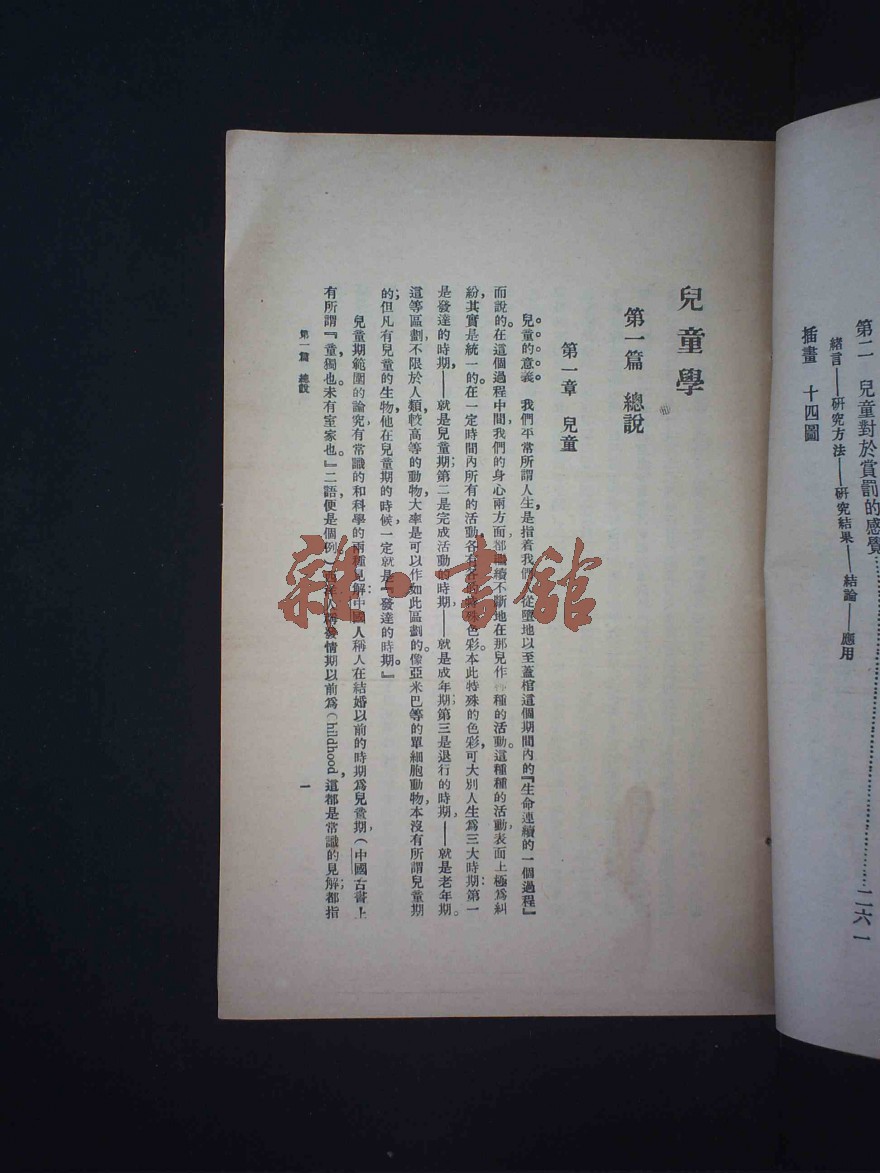 第二　兒童對於賞罰的感覺……二六一
緒言——研究方法——研究結果——結論——應用
插畫　十四圖
兒童學
第一篇　總說
第一章　兒童
兒童的意義。　我們平常所謂人生，是指着我們從墮地以至蓋棺這個期間內的『生命連續的一個過程』
而說的。在這個過程中間，我們的身心兩方面，都繼續不斷地在那兒作種種的活動。這種種的活動，表面上極爲糾
紛，其實是統一的。在一定時間內所有的活動，各有各的特殊色彩。本此特殊的色彩，可大別人生爲三大時期：第一
是發達的時期，——就是兒童期；第二是完成活動的時期，——就是成年期；第三是退行的時期，——就是老年期。
這等區劃，不限於人類，較高等的動物，大率是可以作如此區劃的。像亞米巴等的單細胞動物，本沒有所謂兒童期
的；但凡有兒童的生物，他在兒童期的時候，一定就是『發達的時期。』
兒童期範圍的論究，有常識的和科學的兩種見解：中國人稱人在結婚以前的時期爲兒童期，（中國古書上
有所謂『童，獨也。未有室家也。』二語，便是個例。）西洋人稱發情期以前爲Childhood，這都是常識的見解；都指
第一篇　總說
一
雜·書館